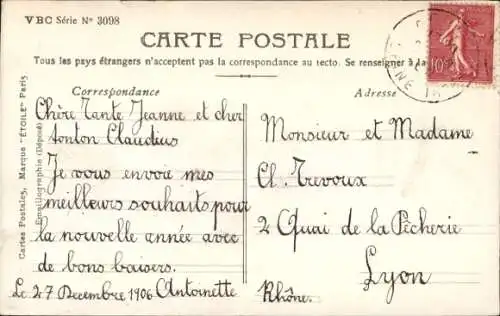 VBC Série Nº 3098
CARTE POSTALE
Tous les pays étrangers n'acceptent pas la correspondance au recto. Se renseigner à la
Correspondance
Adresse
Cartes Postales, Marque "ÉTOILE" Paris
Emaillographie (Déposé)
Chère Tante Jeanne et cher
tonton Claudius
Je vous envoie mes
meilleurs souhaits pour
la nouvelle année avec
de bons baisers.
Le 27 Decembre 1906 Antoinette
Monsieur et Madame
Cl. Trevoux
2 Quai de la Pêcherie
Lyon
Rhône.
10c